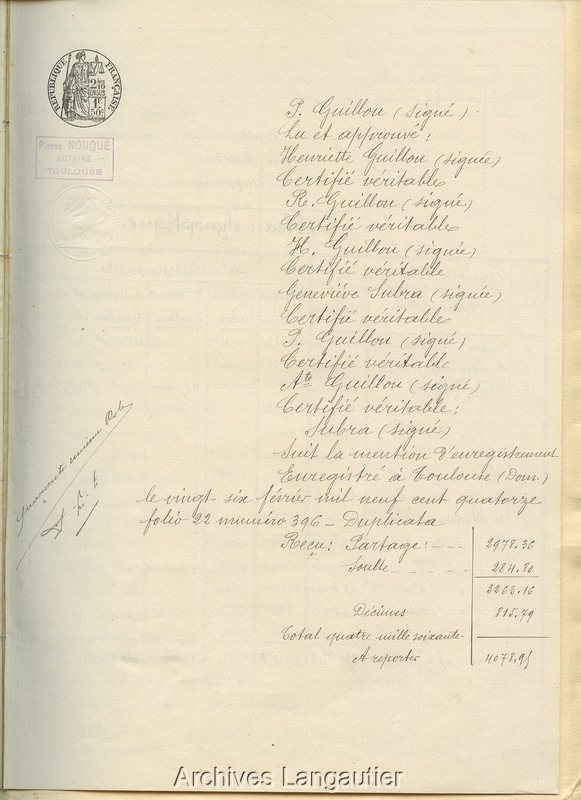 RÉPUBLIQUE FRANÇAISE
1F
50c
PIERRE NOUQUÉ
NOTAIRE
TOULOUSE
P. Guillou (signé).
Lu et approuvé :
Henriette Guillou (signée)
Certifié véritable
R. Guillou (signé)
Certifié véritable
H. Guillou (signé)
Certifié véritable
Geneviève Subra (signée)
Certifié véritable
P. Guillou (signé)
Certifié véritable
Ate Guillou (signé)
Certifié véritable :
Subra (signé)
Suit la mention d'enregistrement
Enregistré à Toulouse (Dom.)
le vingt-six février mil neuf cent quatorze
folio 22 numéro 396 - Duplicata
Reçu : Partage : 2978.36
Soulte 284.80
3263.16
Décimes 815.79
Total quatre mille soixante-
A reporter 4078.95
Archives Langautier